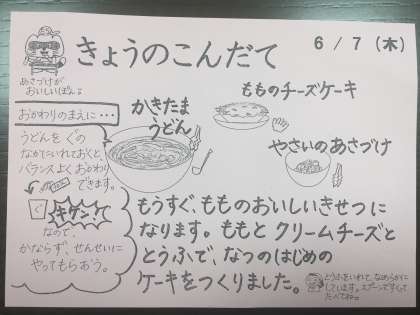 きょうのこんだて
6 / 7 (木)
あさづけが
おいしいぱんよ
おかわりのまえに…
うどんを ぐの
なかにいれておくと、
バランスよく おかわり
できます。
キケン！
なので、
かならず、せんせいに
やってもらおう。
かきたま
うどん
もものチーズケーキ
やさいのあさづけ
もうすぐ、もものおいしいきせつに
なります。ももと クリームチーズと
とうふで、なつのはじめの
ケーキをつくりました。
とうふをいれて、なめらかに
しています。スプーンですくって
たべてね。